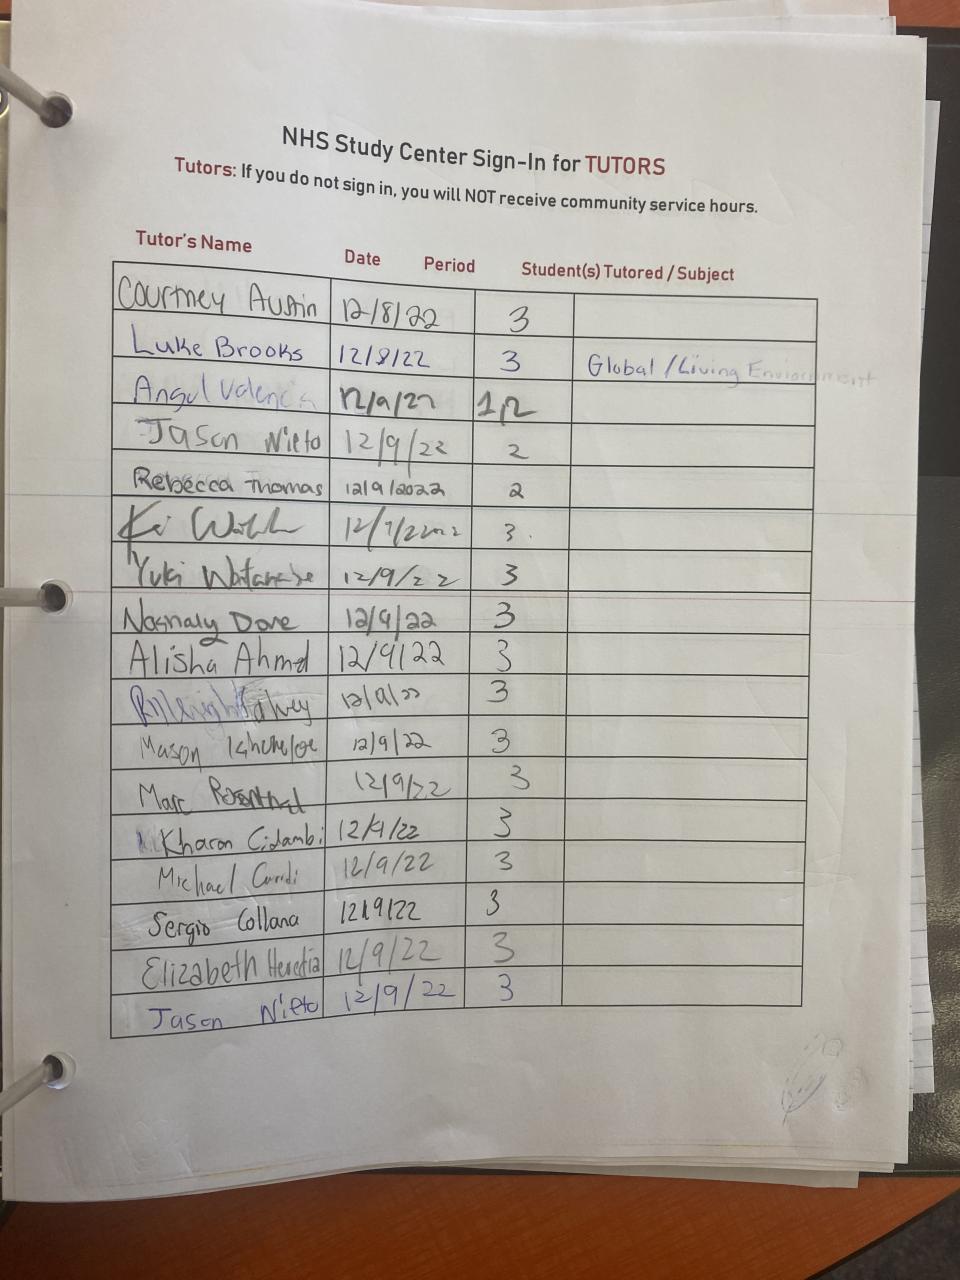 NHS Study Center Sign-In for TUTORS
Tutors: If you do not sign in, you will NOT receive community service hours.
Tutor's Name Date Period Student(s) Tutored / Subject
Courtney Austin 12/8/22 3
Luke Brooks 12/8/22 3 Global / Living Environment
Angel Valencia 12/9/22 1,2
Jason Nieto 12/9/22 2
Rebecca Thomas 12/9/2022 2
3
Yuki Watanabe 12/9/22 3
Dore 12/9/22 3
Alisha Ahmed 12/9/22 3
12/9/22 3
Mason 12/9/22 3
Marc Rosenthal 12/9/22 3
Kharon Cidambi 12/9/22 3
Michael 12/9/22 3
Sergio Collana 12/9/22 3
Elizabeth Heredia 12/9/22 3
Jason Nieto 12/9/22 3